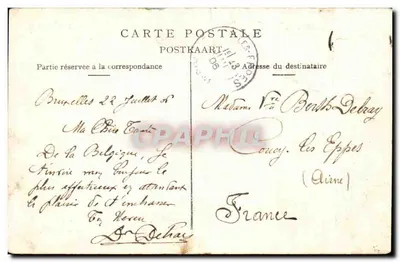 CARTE POSTALE
POSTKAART
Partie réservée à la correspondance
Adresse du destinataire
Bruxelles 22 Juillet 06
Ma Chère Tante
De la Belgique, Je
t'envoie mes
plus affectueux en attendant
le plaisir de t'embrasser
Ton Neveu
Dr Delray
Madame Vve Berth-Delray
Coucy les Eppes
(Aisne)
France